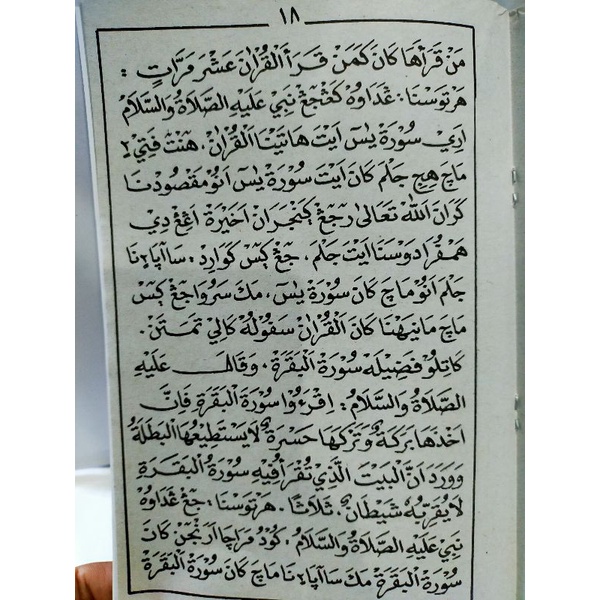 ١٨
مَنْ قَرَأَهَا كَانَ كَمَنْ قَرَأَ الْقُرْاٰنَ عَشَرَ مَرَّاتٍ :
هَرْتَوْسْنَا : غَدَاوُهْ كَڠْجَڠْ نَبِيْ عَلَيْهِ الصَّلَاةُ وَالسَّلَامُ
اَرِيْ سُوْرَةْ يٰسۤ اَيْتَ هَاتَيْنَا الْقُرْاٰنْ، هَنْتَ فَنِيْ٢
مَاچَ هِجِ جَلْمَ كَانَ اَيْتَ سُوْرَةْ يٰسۤ اَنُوْ مَقْصُوْدْنَا
كَرَانَ اَللّٰهُ تَعَالٰى رَجٓعْ ڮَنْجَرَانْ اَخِيْرَةْ اَڠِڠْ دِيْ
هَمْڤُرَا دَوْسَنَا اَيْتَ جَلْمَ، جَڠْ ڮَسْ كَوَارِدْ : سَاآپَا٢نَا
جَلْمَ اَنُوْ مَاچَ كَانَ سُوْرَةْ يٰسۤ، مَكَ سَرُوَا جَڠْ ڮَسْ
مَاچَ مَانَيْهْنَا كَانَ الْقُرْاٰنْ سَڤُوْلُهْ كَالِيْ تَمَتَنْ.
كَاتِلُوْ فَضِيْلَهْ سُوْرَةْ الْبَقَرَةْ. وَقَالَ عَلَيْهِ
الصَّلَاةُ وَالسَّلَامُ : اِقْرَءُوْا سُوْرَةَ الْبَقَرَةِ فَاِنَّ
اَخْذَهَا بَرَكَةٌ وَتَرْكَهَا حَسْرَةٌ لَايَسْتَطِيْعُهَا الْبَطَلَةُ
وَوَرَدَ اَنَّ الْبَيْتَ الَّذِيْ تُقْرَأُ فِيْهِ سُوْرَةُ الْبَقَرَةِ
لَا يَقْرَبُهُ شَيْطَانٌ. ثَلَاثًا. هَرْتَوْسْنَا. جَڠْ غَدَاوُهْ
نَبِيْ عَلَيْهِ الصَّلَاةُ وَالسَّلَامُ. كُوْدُ مَرَاچَا اَرَنْجَنْ كَانَ
سُوْرَةْ الْبَقَرَةْ مَكَ سَاآپَا٢نَا مَاچَ كَانَ سُوْرَةْ الْبَقَرَةْ